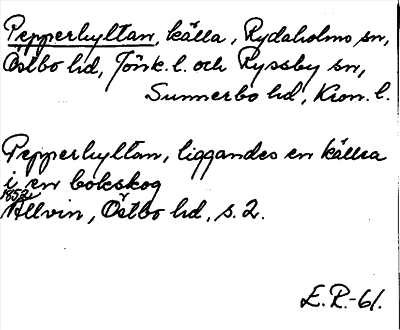 Pepperhyltan, källa, Rydaholms sn,
Östbo hd, Jönk. l. och Ryssby sn,
Sunnerbo hd, Kron. l.
Pepperhyltan, liggandes en källa
i en bokskog
1852
Allvin, Östbo hd, s. 2.
E.R.-61.